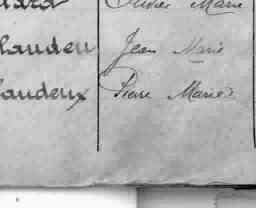 Olivier Marie
laudeu Jean Marie
laudeux Pierre Marie